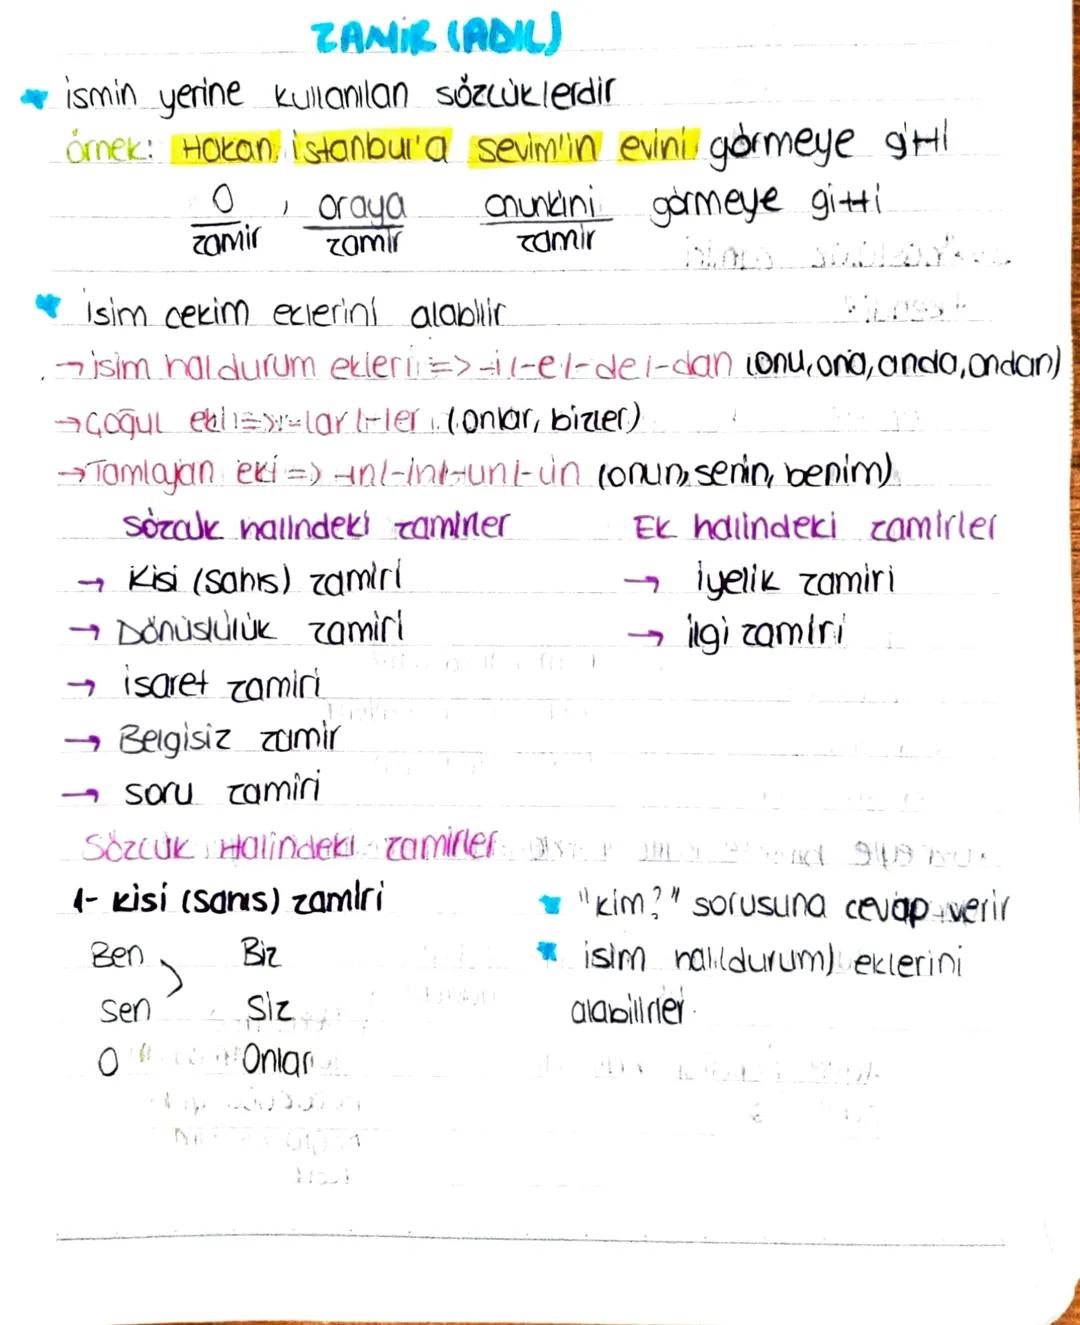 ZAMİR (ADIL)
ismin yerine kullanılan sözcüklerdir
örnek: Hakan, istanbul'a sevim'in evini görmeye gitti
O , oraya onunkini görmeye gitti
zamir zamir zamir
isim cekim eklerini alabilir
→ isim hal durum ekleri => -i/-e/-de/-dan (onu, ona, anda, ondan)
→ Çoğul eki => -lar/-ler (onlar, bizler)
→ Tamlayan eki => -ın/-in/-un/-ün (onun, senin, benim)
sözcük halindeki zamirler Ek halindeki zamirler
→ Kisi (sahıs) zamiri → iyelik zamiri
→ Dönüslülük zamiri → ilgi zamiri
→ isaret zamiri
→ Belgisiz zamir
→ soru zamiri
Sözcük Halindeki zamirler
1- kisi (sahıs) zamiri "kim?" sorusuna cevap verir
Ben Biz isim hal(durum) eklerini
sen Siz alabilirler.
O Onlar